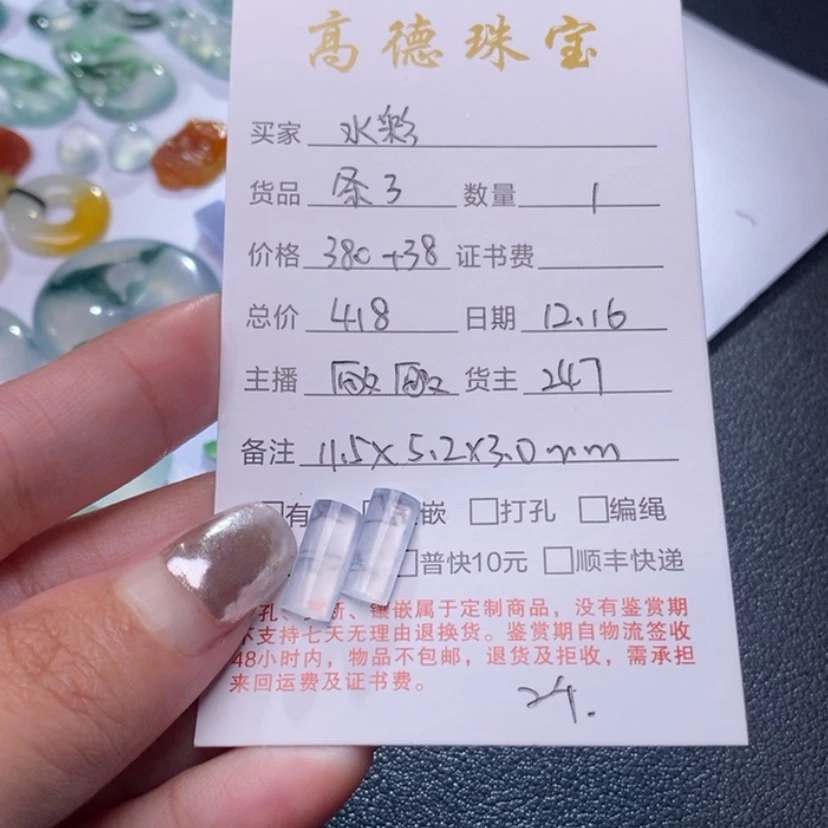 高德珠宝
买家 水彩
货品 条子 数量 1
价格 380+38 证书费
总价 418 日期 12.16
主播 货主 247
备注 11.5×5.2×3.0mm
有 嵌 打孔 编绳
普快10元 顺丰快递
孔、 镶嵌属于定制商品，没有鉴赏期
不支持七天无理由退换货。鉴赏期自物流签收
48小时内，物品不包邮，退货及拒收，需承担
来回运费及证书费。
24.